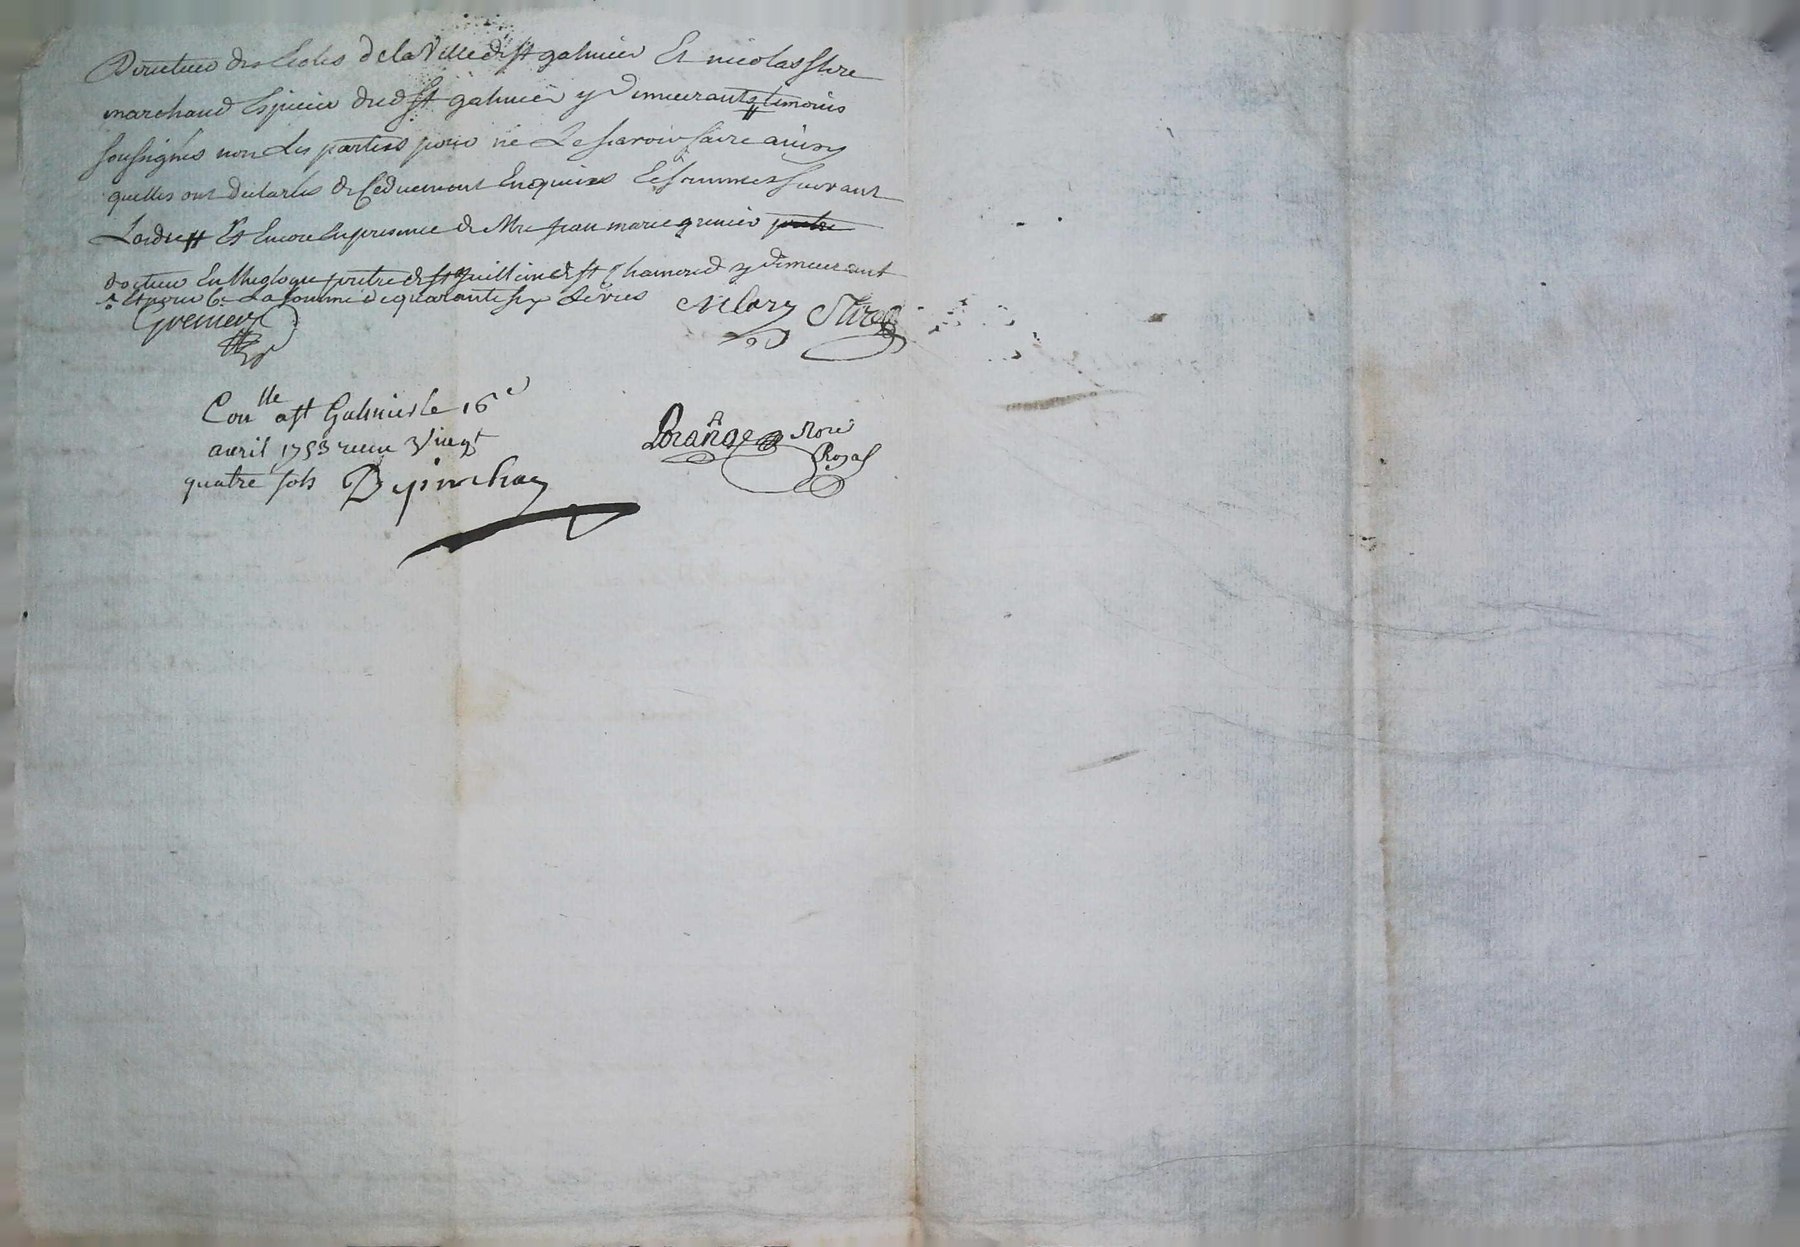 Directeur des Ecoles de la Ville de st galmier Et nicolas Stire
marchand Espicier dud st galmier y demeurants temoins
soussignés non Les parties pour ne Le scavoir faire ainsy
quelles ont declarées de ce duement Enquises Et sommes suivant
Lordre Et Encore En presence de Mre jean marie grenier pretre
docteur En theologie pretre de st st Chamond y demeurant
Et pour Ce La somme de quarante six Livres
Grenier Melary Stire
Conlle a st Galmier le 16e
avril 1753 recu Vingt
quatre sols Depinchaz
Dorange Nore
Royal